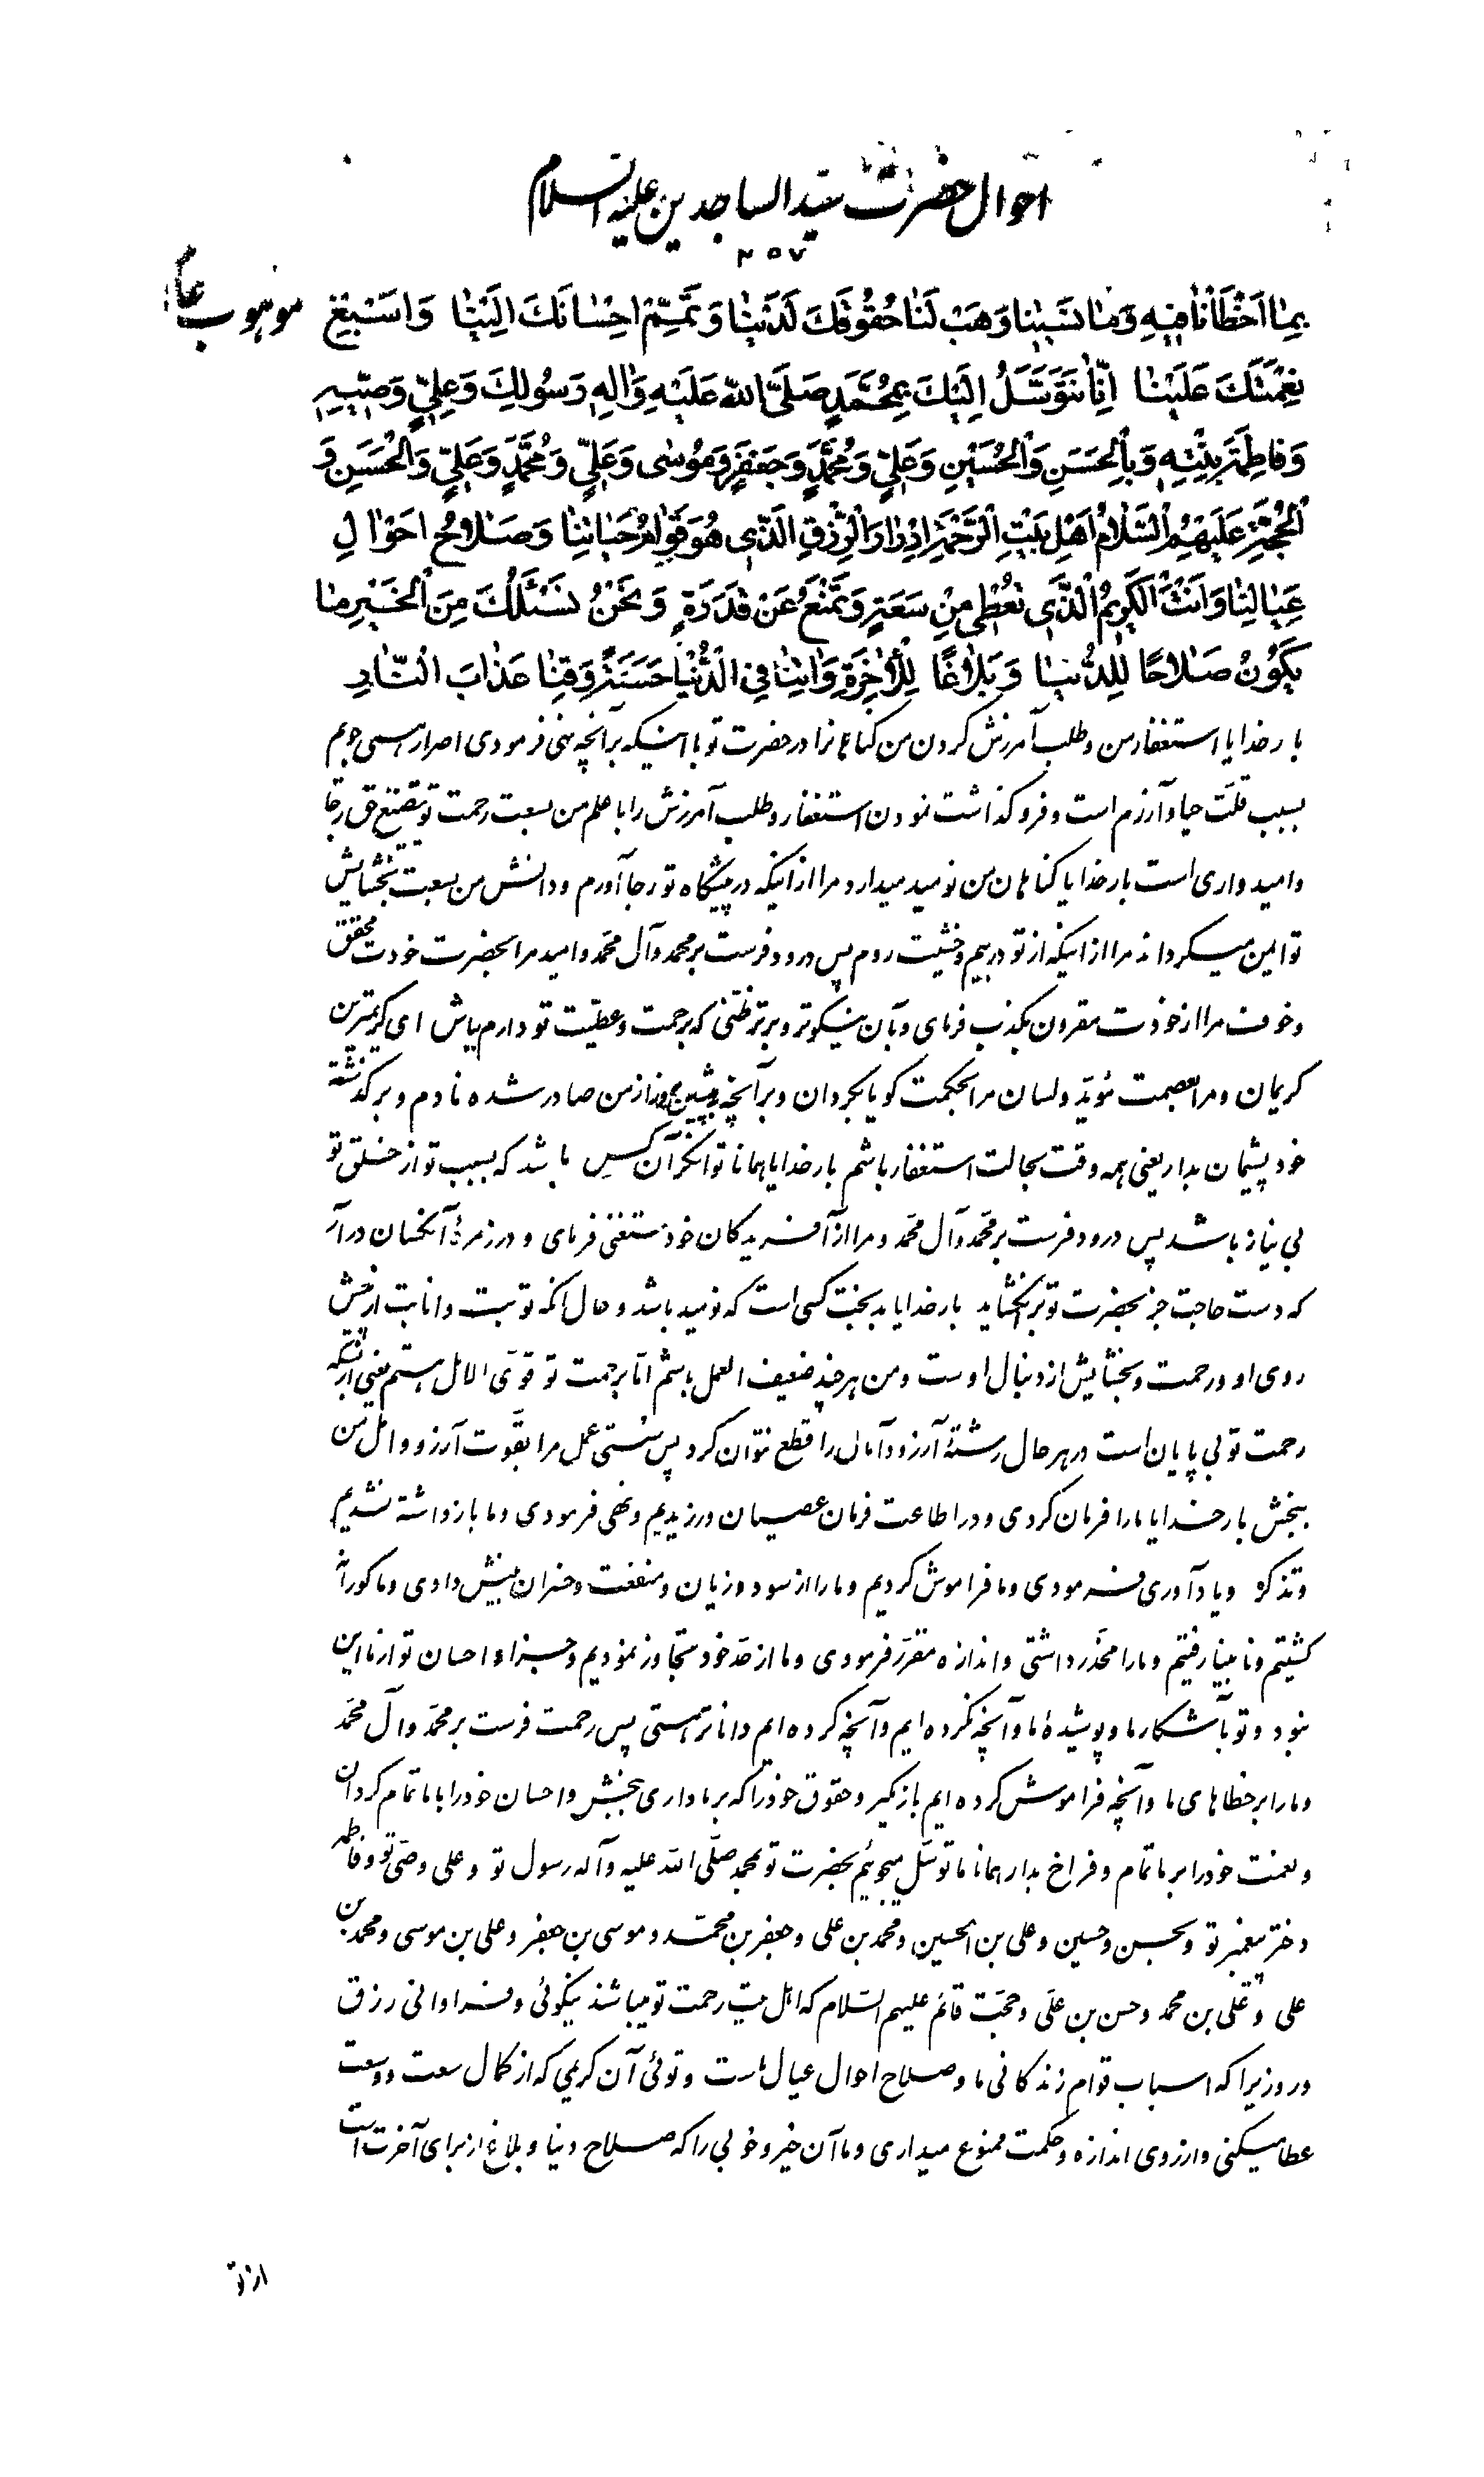 احوال حضرت سید الساجدین علیه السلام
۲۵۷
بِمٰا اَخْطَأْنٰا فِیهِ وَمٰا نَسَینٰا وَهَبْ لَنٰا حُقُوقَكَ لَدَیْنٰا وَتَمِّمْ اِحْسٰانَكَ اِلَیْنٰا وَاَسْبِغْ
موهوب عمّا
نِعْمَتَكَ عَلَیْنٰا اِنّٰا نَتَوَسَّلُ اِلَیْكَ بِمُحَمَّدٍ صَلَّی اللّٰهُ عَلَیْهِ وَاٰلِهِ رَسُولِكَ وَعَلِیٍّ وَصِیِّهِ
وَفٰاطِمَةَ بِنْتِهِ وَبِالْحَسَنِ وَالْحُسَیْنِ وَعَلِیٍّ وَمُحَمَّدٍ وَجَعْفَرٍ وَمُوسٰی وَعَلِیٍّ وَمُحَمَّدٍ وَعَلِیٍّ وَالْحَسَنِ وَ
الْحُجَّةِ عَلَیْهِمُ السَّلٰامُ اَهْلِ بَیْتِ الرَّحْمَةِ اِدْرٰارَ الرِّزْقِ الَّذِی هُوَ قِوٰامُ حَیٰاتِنٰا وَصَلٰاحُ اَحْوٰالِ
عَیٰالِنٰا وَاَنْتَ الْكَرِیمُ الَّذِی تُعْطِی مِنْ سَعَةٍ وَتَمْنَعُ عَنْ قُدْرَةٍ وَنَحْنُ نَسْئَلُكَ مِنَ الْخَیْرِ مٰا
یَكُونُ صَلٰاحًا لِلدُّنْیٰا وَبَلٰاغًا لِلْاٰخِرَةِ وَاٰتِنٰا فِی الدُّنْیٰا حَسَنَةً وَقِنٰا عَذٰابَ النّٰارِ
بار خدایا استغفار من و طلب آمرزش کردن من گناهانرا در حضرت تو با اینکه بر آنچه نهی فرمودی اصرار همی جویم
بسبب قلّت حیا و آزرم است و فرو گذاشت نمودن استغفار و طلب آمرزش را با علم من بسعت رحمت تو تضییع حق رجا
و امیدواری است بار خدایا گناهان من نومید میدارد مرا از اینکه در پیشگاه تو رجا آورم و دانش من بسعت بخشایش
تو ایمن میگرداند مرا از اینکه از تو در بیم و خشیت روم پس درود فرست بر محمد و آل محمّد و امید مرا بحضرت خودت محقق
و خوف مرا از خودت مقرون بکذب فرمای و بآن نیکوتر و برتر ظنّی که برحمت و عطیّت تو دارم بباش ای کریمترین
کریمان و مرا بعصمت مؤیّد و لسان مرا بحکمت گویا بگردان و بر آنچه از من صادر شده نادم و بر گذشته
خود پشیمان بدار یعنی همه وقت بحالت استغفار باشم بار خدایا همانا توانگر آن کس باشد که بسبب تو از خلق تو
بی نیاز باشد پس درود فرست بر محمّد و آل محمّد و مرا از آفریدگان خود مستغنی فرمای و در زمرهٔ آنکسان در آر
که دست حاجت جز بحضرت تو برنگشاید بار خدایا بدبخت کسی است که نومید باشد و حال آنکه توبت و انابت از پیش
روی او و رحمت و بخشایش از دنبال اوست و من هر چند ضعیف العمل باشم امّا برحمت تو قوّی الامل هستم یعنی از آنکه
رحمت تو بی پایان است در هر حال رشتهٔ آرزو و آمال را قطع نتوان کرد پس سستی عمل مرا بقوّت آرزو و امل من
ببخش بار خدایا ما را فرمان کردی و در اطاعت فرمان عصیان ورزیدیم و نهی فرمودی و ما باز داشته نشدیم
و تذکر و یاد آوری فرمودی و ما فراموش کردیم و ما را از سود و زیان و منفعت و خسران بینش دادی و ما کورانه
گشتیم و نابینا رفتیم و ما را محذّر داشتی و اندازه مقرّر فرمودی و ما از حدّ خود متجاوز نمودیم و جزاء احسان تو از ما این
نبود و تو بآشکار ما و پوشیدهٔ ما و آنچه نکرده ایم و آنچه کرده ایم داناتر هستی پس رحمت فرست بر محمّد و آل محمّد
و ما را بر خطاهای ما و آنچه فراموش کرده ایم بازمگیر و حقوق خود را که بر ما داری ببخش و احسان خود را با ما تمام گردان
و نعمت خود را بر ما تمام و فراخ بدار همانا ما توسّل میجوئیم بحضرت تو بمحمد صلّی الله علیه و آله رسول تو و علی وصّی تو و فاطمه
دختر پیغمبر تو و بحسن و حسین و علی بن الحسین و محمد بن علی و جعفر بن محمّد و موسی بن جعفر و علی بن موسی و محمد بن
علی و علی بن محمد و حسن بن علی و حجّت قائم علیهم السّلام که اهل بیت رحمت تو میباشند نیکوئی و فراوانی رزق
و روزیرا که اسباب قوام زندگانی ما و صلاح احوال عیال ماست و توئی آن کریمی که از کمال سعت و وسعت
عطا میکنی و از روی اندازه و حکمت ممنوع میداری و ما آن خیر و خوبی را که صلاح دنیا و بلاغ از برای آخرت است
از تو